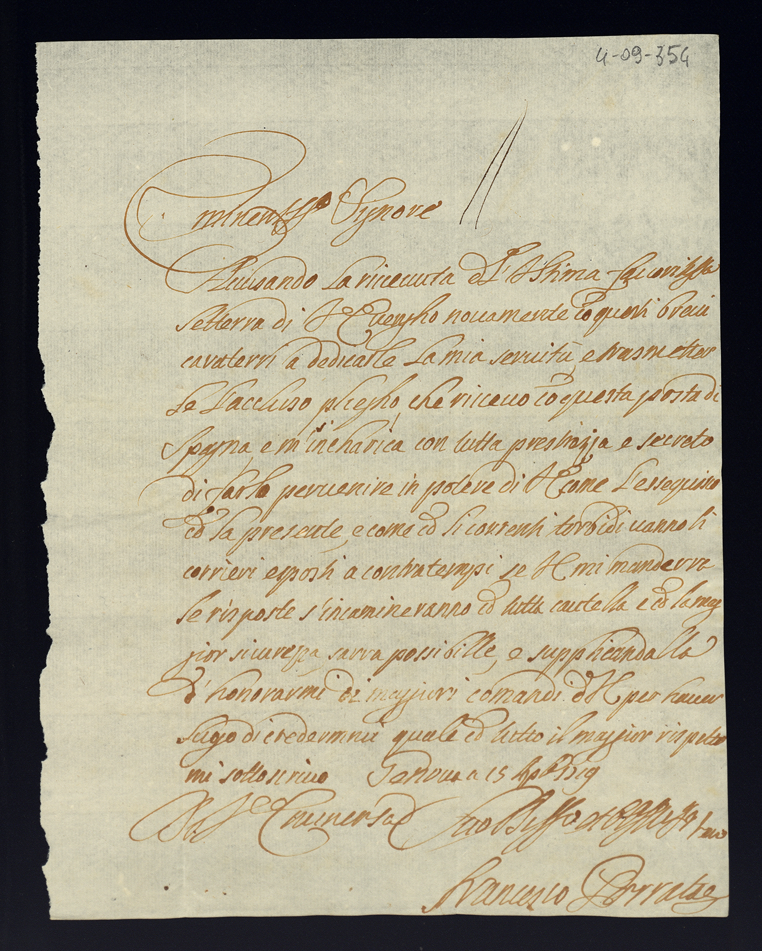 4-09-354
Eminentiss.o Signore
Accusando la riceeuta dell'
settera di V E vengho nouamente co questi breui
caraterri a dedicarle la mia seruitù, e trasmetter
le l'accluso plegho, che riceuo co questa posta di
Spagna e m'incharica con tutta prestezza e secreto
di farlo peruenire in potere di V E come l'esseguisco
co la presente, e come co li correnti torbidi uanno li
corrieri e posti a contratempi se V E mi manderra
le risposte s'incamineranno co tutta cautella e co la mag
gior sicurezza sarra possibille, e supplicandolla
d'honorarmi di maggiori comandi d V E per hauer
luogo di credermivi quale co tutto il maggior rispetto
mi sottoscriuo Genoua a 15 Ap.le 1719
Di V E Eminenza
Francesco